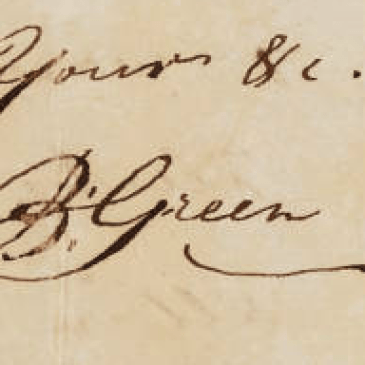 Yours &c.
B. Green